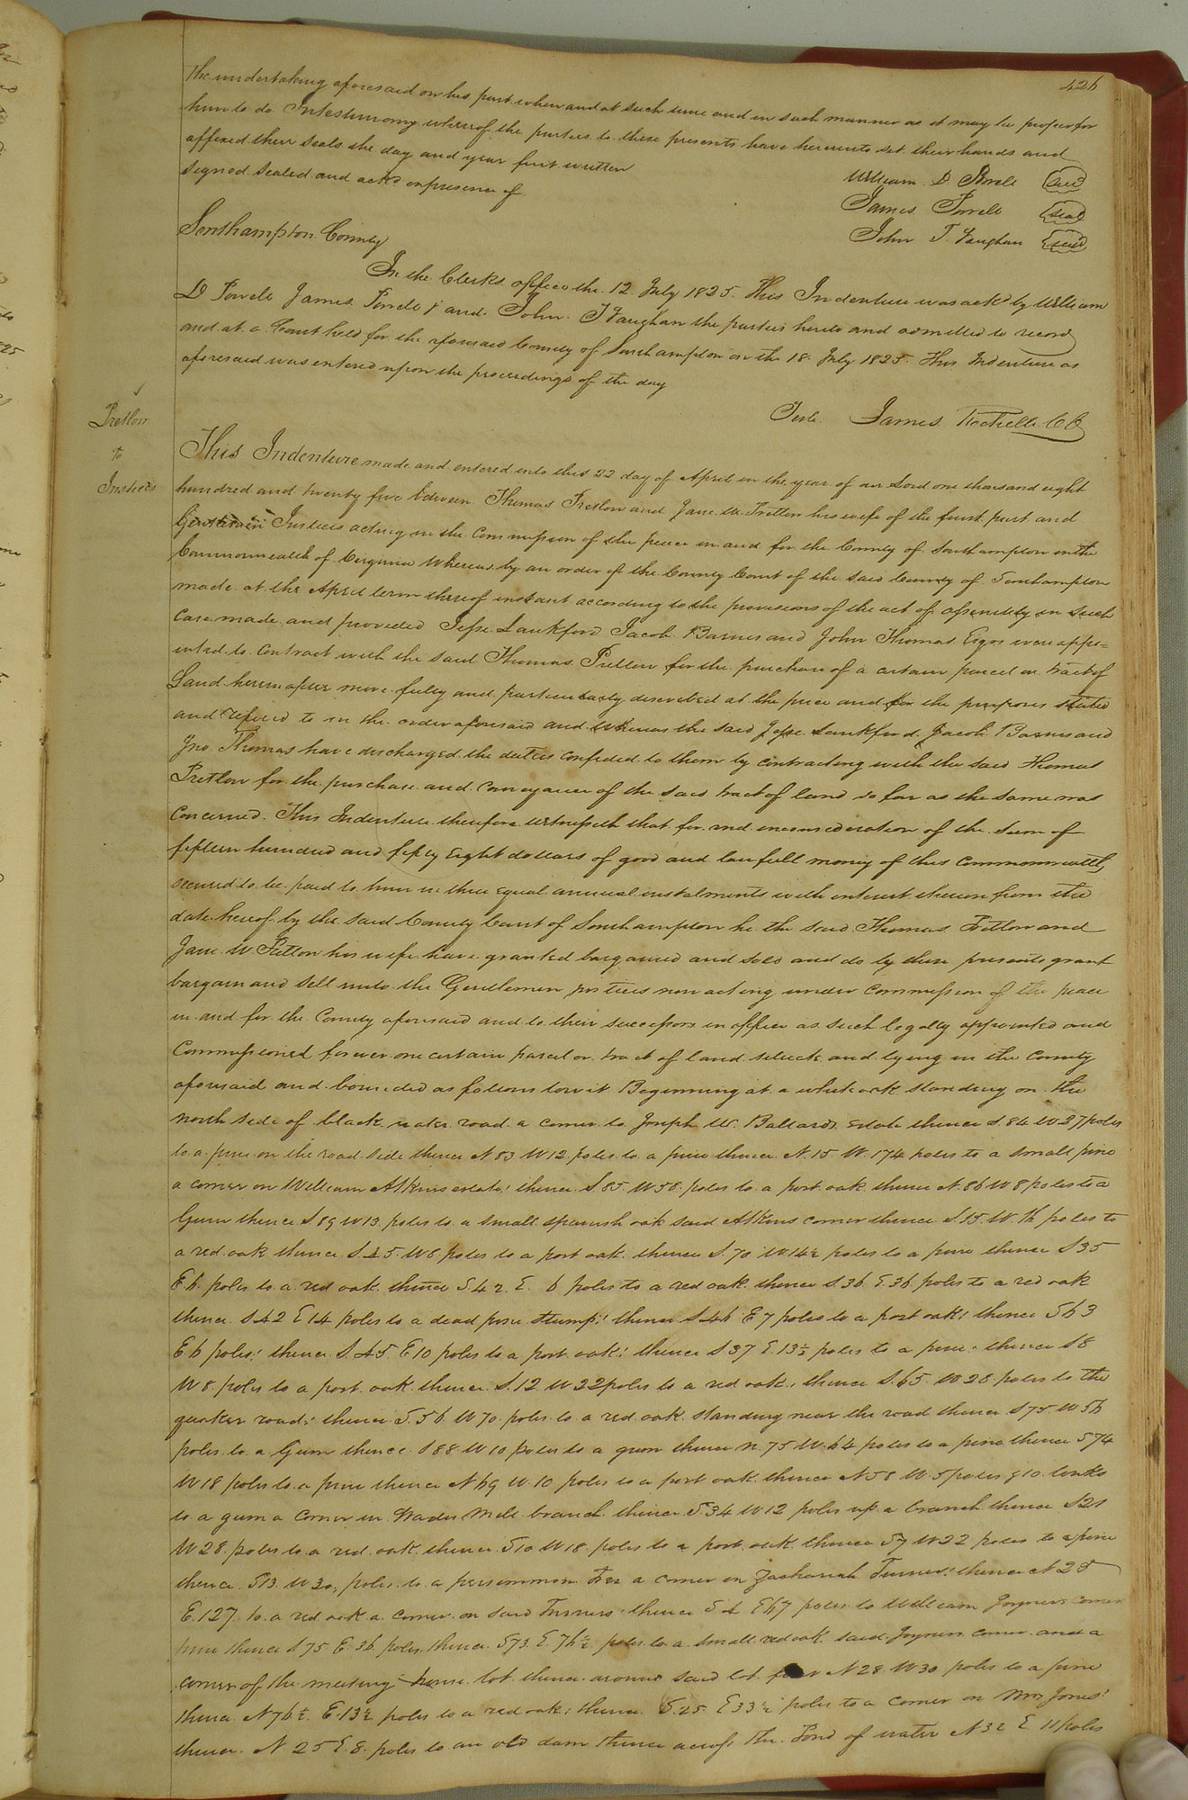 426
the undertaking aforesaid on his part when and at such time and in such manner as it may be proper for
him to do In testimony whereof the parties to these presents have hereunto set their hands and
affixed their seals the day and year first written
Signed Sealed and ackd in presence of
William D Powell seal
James Powell seal
John T. Vaughan seal
Southampton County
In the Clerks office the 12 July 1825. This Indenture was ackd by William
D Powell James Powell & and John T Vaughan the parties hereto and admitted to record
and at a Court held for the aforesaid County of Southampton on the 18 July 1825. This Indenture as
aforesaid was entered upon the proceedings of the day
Teste James Rochelle CC
Pretlow
to
Justices
This Indenture made and entered into this 22 day of April in the year of our Lord one thousand eight
hundred and twenty five between Thomas Pretlow and Jane W. Pretlow his wife of the first part and
Justices acting in the Commission of the peace in and for the County of Southampton in the
Commonwealth of Virginia Whereas by an order of the County Court of the said County of Southampton
made at the April term thereof instant according to the provisions of the act of assembly in such
case made and provided Jesse Lankford Jacob Barnes and John Thomas Esqrs were appo=
inted to contract with the said Thomas Pretlow for the purchase of a certain parcel or tract of
Land herein after more fully and particularly described at the price and for the purposes stated
and refered to in the order aforesaid and Whereas the said Jesse Lankford Jacob Barnes and
Jno. Thomas have discharged the duties confided to them by contracting with the said Thomas
Pretlow for the purchase and conveyance of the said tract of land so far as the same was
concerned. This Indenture therefore witnesseth that for and in consideration of the sum of
fifteen hundred and fifty eight dollars of good and lawfull money of this commonwealth,
secured to be paid to him in three equal annual instalments with interest thereon from the
date hereof by the said County Court of Southampton he the said Thomas Pretlow and
Jane W Pretlow his wife have granted bargained and sold and do by these presents grant
bargain and sell unto the Gentlemen justices now acting under commission of the peace
in and for the County aforesaid and to their successors in office as such legally appointed and
Commissioned forever one certain parcel or tract of land situate and lying in the County
aforesaid and bounded as follows towit Beginning at a white oak standing on the
north side of black water road a corner to Joseph W. Ballards estate thence S. 84 W 27 poles
to a pine on the road side thence N 83 W 12 poles to a pine thence N. 15 W. 174 poles to a small pine
a corner on William Atkins estate; thence S. 85. W 58 poles to a post oak thence N 86 W 8 poles to a
Gum thence S 89 W 13 poles to a small spanish oak said Atkins corner thence S 55. W. 16 poles to
a red oak thence S. 45. W 6 poles to a post oak thence S. 70 W 14½ poles to a pine thence S 35
E 6 poles to a red oak thence S 42. E. 6 poles to a red oak thence S 36 E 36 poles to a red oak
thence S 42 E 14 poles to a dead pine stump; thence S 46 E 7 poles to a post oak; thence S 63
E 6 poles; thence S. 45 E 10 poles to a post oak; thence S 37 E. 13½ poles to a pine; thence S 8
W 8 poles to a post oak thence S. 12 W 22 poles to a red oak; thence S. 65. W 28 poles to the
quaker road; thence S. 56 W 70 poles to a red oak standing near the road thence S 75 W 56
poles to a Gum thence S 88 W 10 poles to a gum thence N. 75 W 64 poles to a pine thence S 74
W 18 poles to a pine thence N 69 W 10 poles to a post oak thence N 58 W 5 poles & 10 links
to a gum a corner in Wades Mill branch thence S 34 W 12 poles up a branch thence S 21
W 28 poles to a red oak thence S 10 W 18 poles to a post oak thence S 7 W 22 poles to a pine
thence S 13 W 30, poles to a persimmon tree a corner on Zachariah Turner; thence N 25
E. 127. to a red oak a corner on said Turners thence S 4 E 67 poles to William Joyners corner
pine thence S 75 E 36 poles thence S 73. E. 76½ poles to a small red oak said Joyners corner and a
corner of the meeting house lot thence around said lot N 28 W 30 poles to a pine
thence N 76½ E. 13½ poles to a red oak; thence S. 25 E 33½ poles to a corner on Mrs Jones'
thence N 25 E. 8. poles to an old dam thence across the Pond of water N 32 E 11 poles